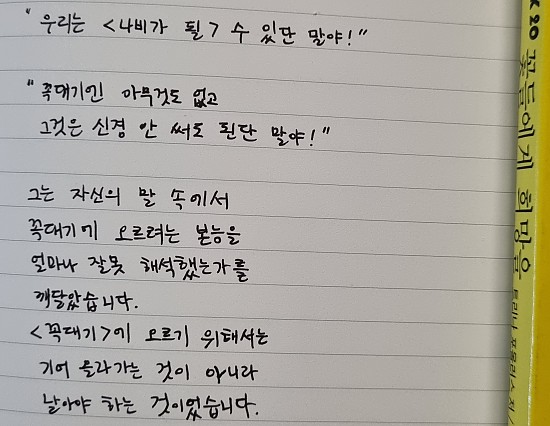 "우리는 <나비가 될> 수 있단 말야!"
"꼭대기엔 아무것도 없고
그것은 신경 안 써도 된단 말야!"
그는 자신의 말 속에서
꼭대기에 오르려는 본능을
얼마나 잘못 해석했는가를
깨달았습니다.
<꼭대기>에 오르기 위해서는
기어 올라가는 것이 아니라
날아야 하는 것이었습니다.
20 꽃들에게 희망을